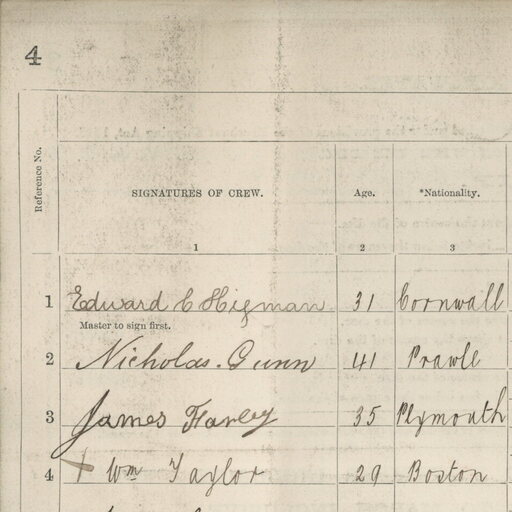 4
Reference No.
SIGNATURES OF CREW. Age. *Nationality.
1 2 3
1 Edward C Higman 31 Cornwall
Master to sign first.
2 Nicholas. Gunn 41 Prawle
3 James Farley 35 Plymouth
4 + Wm Taylor 29 Boston